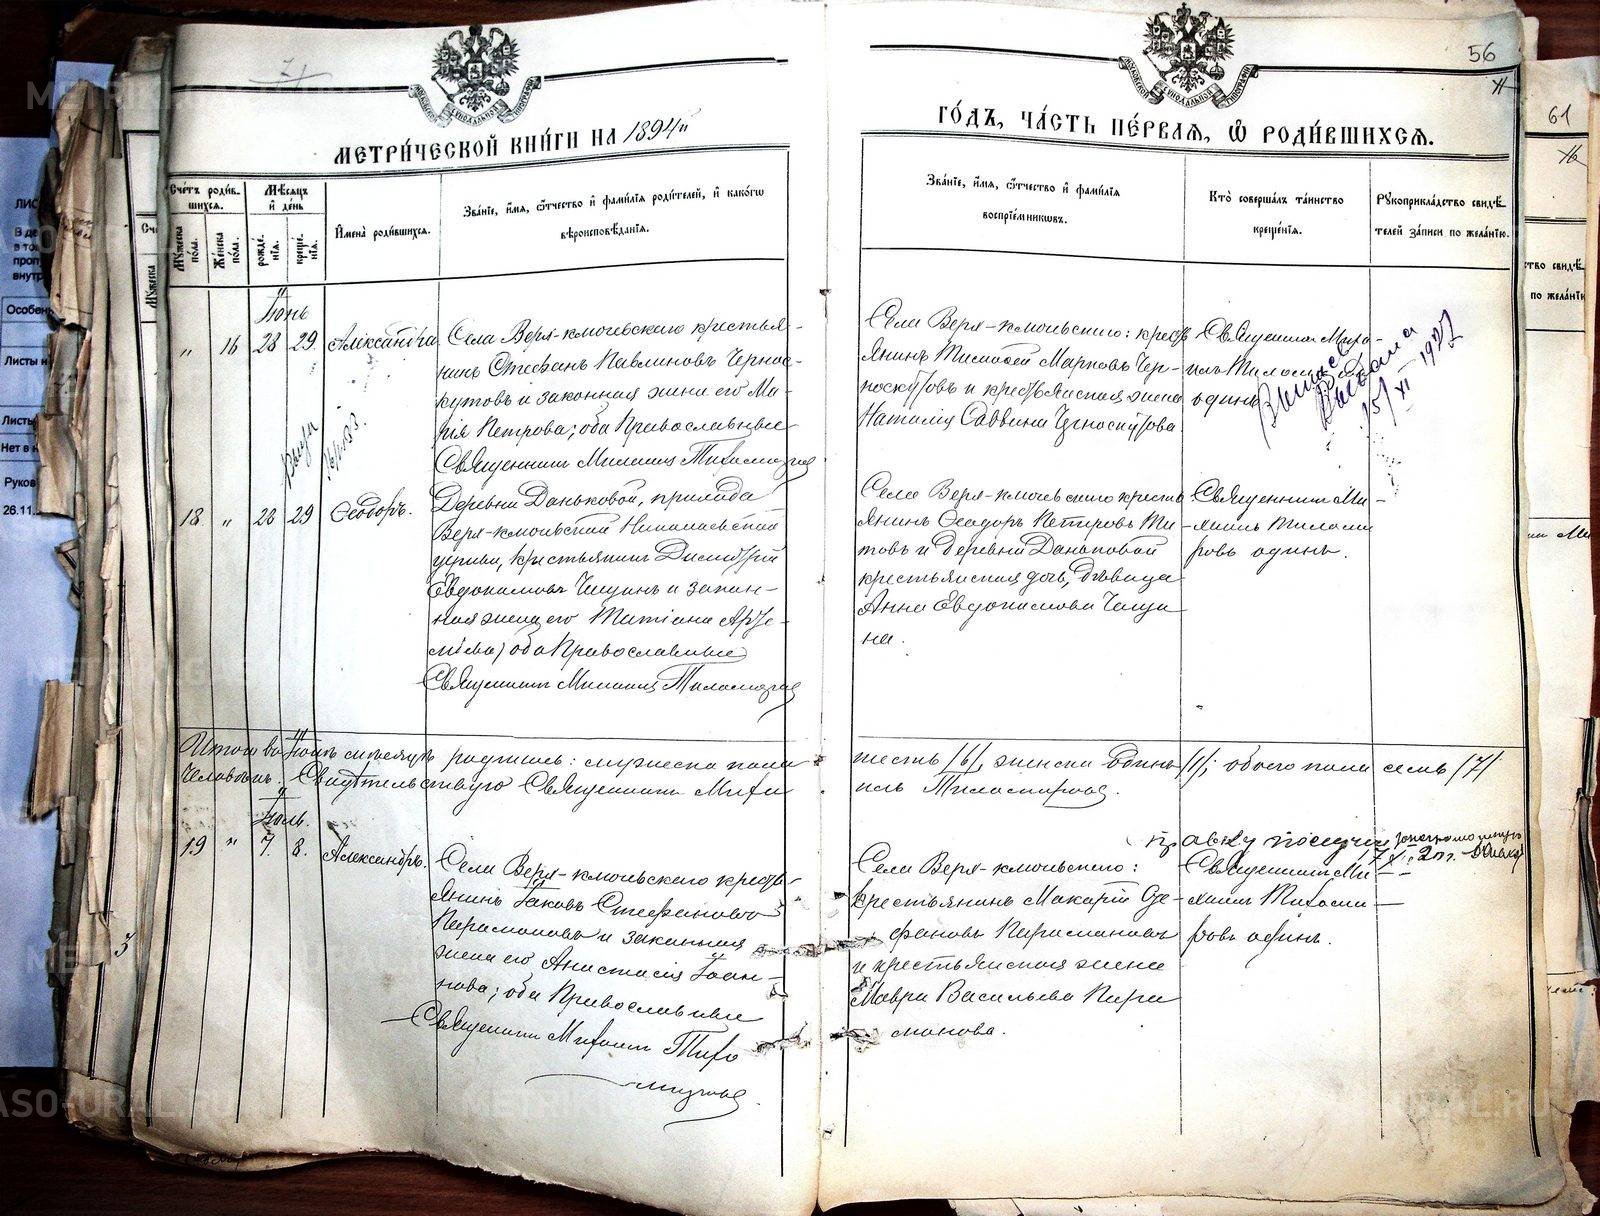 56
МЕТРИ́ЧЕСКОЙ КНИ́ГИ НА 1894й
ГО́ДЪ, ЧА́СТЬ ПЕ́РВАѦ, Ѡ҆ РОДИ́ВШИХСѦ.
Сче́тъ роди́в-
шихсѧ.
Му́жеска по́ла.
Же́нска по́ла.
Мѣ́сѧцъ и҆ де́нь
рожде́-
нїѧ.
креще́-
нїѧ.
И҆мена̀ роди́вшихсѧ.
Зва́нїе, и҆́мѧ, ѻ҆́тчество и҆ фами́лїѧ роди́телей, и҆ како́гѡ
вѣроисповѣ́данїѧ.
Зва́нїе, и҆́мѧ, ѻ҆́тчество и҆ фами́лїѧ
воспрїе́мникѡвъ.
Кто̀ соверша́лъ та́инство
креще́нїѧ.
Рꙋкоприкла́дство свидѣ́-
телей за́писи по жела́нїю.
Іюнь
„ 16 28 29 Александра
Села Верх-ключевского крестья-
нинъ Стефанъ Павлиновъ Чернос-
кутовъ и законная жена его Ма-
рія Петрова; оба Православные
Священникъ Михаилъ Тихомировъ
Села Верх-ключевского: кресть
янинъ Тимофей Марковъ Чер-
носкутовъ и крестьянская жена
Наталія Саввина Черноскутова
Священникъ Миха-
илъ Тихомировъ
одинъ
15/XI 1927
18 „ 28 29 Ѳеодоръ.
Деревни Даньковой, прихода
Верх-ключевской Николаевской
церкви, крестьянинъ Димитрій
Евдокимовъ Чащинъ и закон-
ная жена его Татіана Арте-
міева; оба Православные
Священникъ Михаилъ Тихомировъ
Села Верх-ключевского кресть
янинъ Ѳеодоръ Петровъ Ти-
товъ и деревни Даньковой
крестьянская дочь, дѣвица
Анна Евдокимова Чащи
на.
Священникъ Ми-
хаилъ Тихоми
ровъ одинъ.
Итого во Іюнѣ мѣсяцѣ родилось: мужеска пола
шесть /6/, женска одинъ /1/; обоего пола семь /7/
человѣкъ. Свидѣтельствую Священникъ Миха
илъ Тихомировъ.
Іюль.
19 „ 7. 8. Александръ.
Села Верх-ключевского кресть-
янинъ Іаковъ Стефановъ
Парамоновъ и законная
жена его Анастасія Іоан-
нова; оба Православные
Священникъ Михаилъ Тихо
мировъ.
Села Верх-ключевского:
крестьянинъ Макарій Сте-
фановъ Парамоновъ
и крестьянская жена
Мавра Васильева Пара
монова.
Священникъ Ми
хаилъ Тихоми-
ровъ одинъ.
61
METRIKI
ASO-URAL.RU